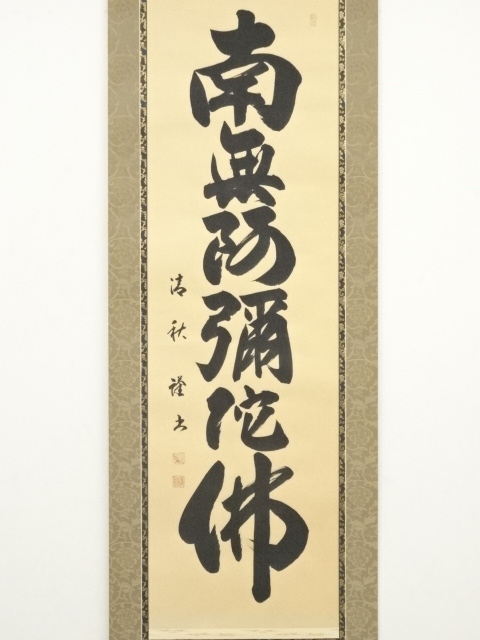 南無阿彌陀佛
清秋謹書